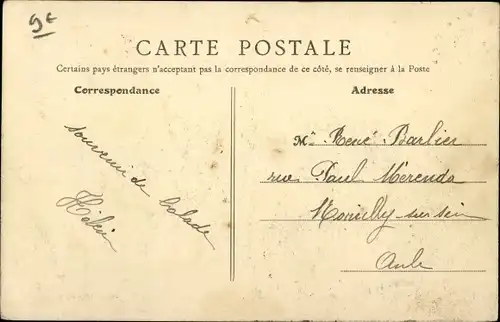 9€
CARTE POSTALE
Certains pays étrangers n'acceptant pas la correspondance de ce côté, se renseigner à la Poste
Correspondance
Adresse
souvenir de balade
Mr René Barlier
rue Paul
sur
Aube